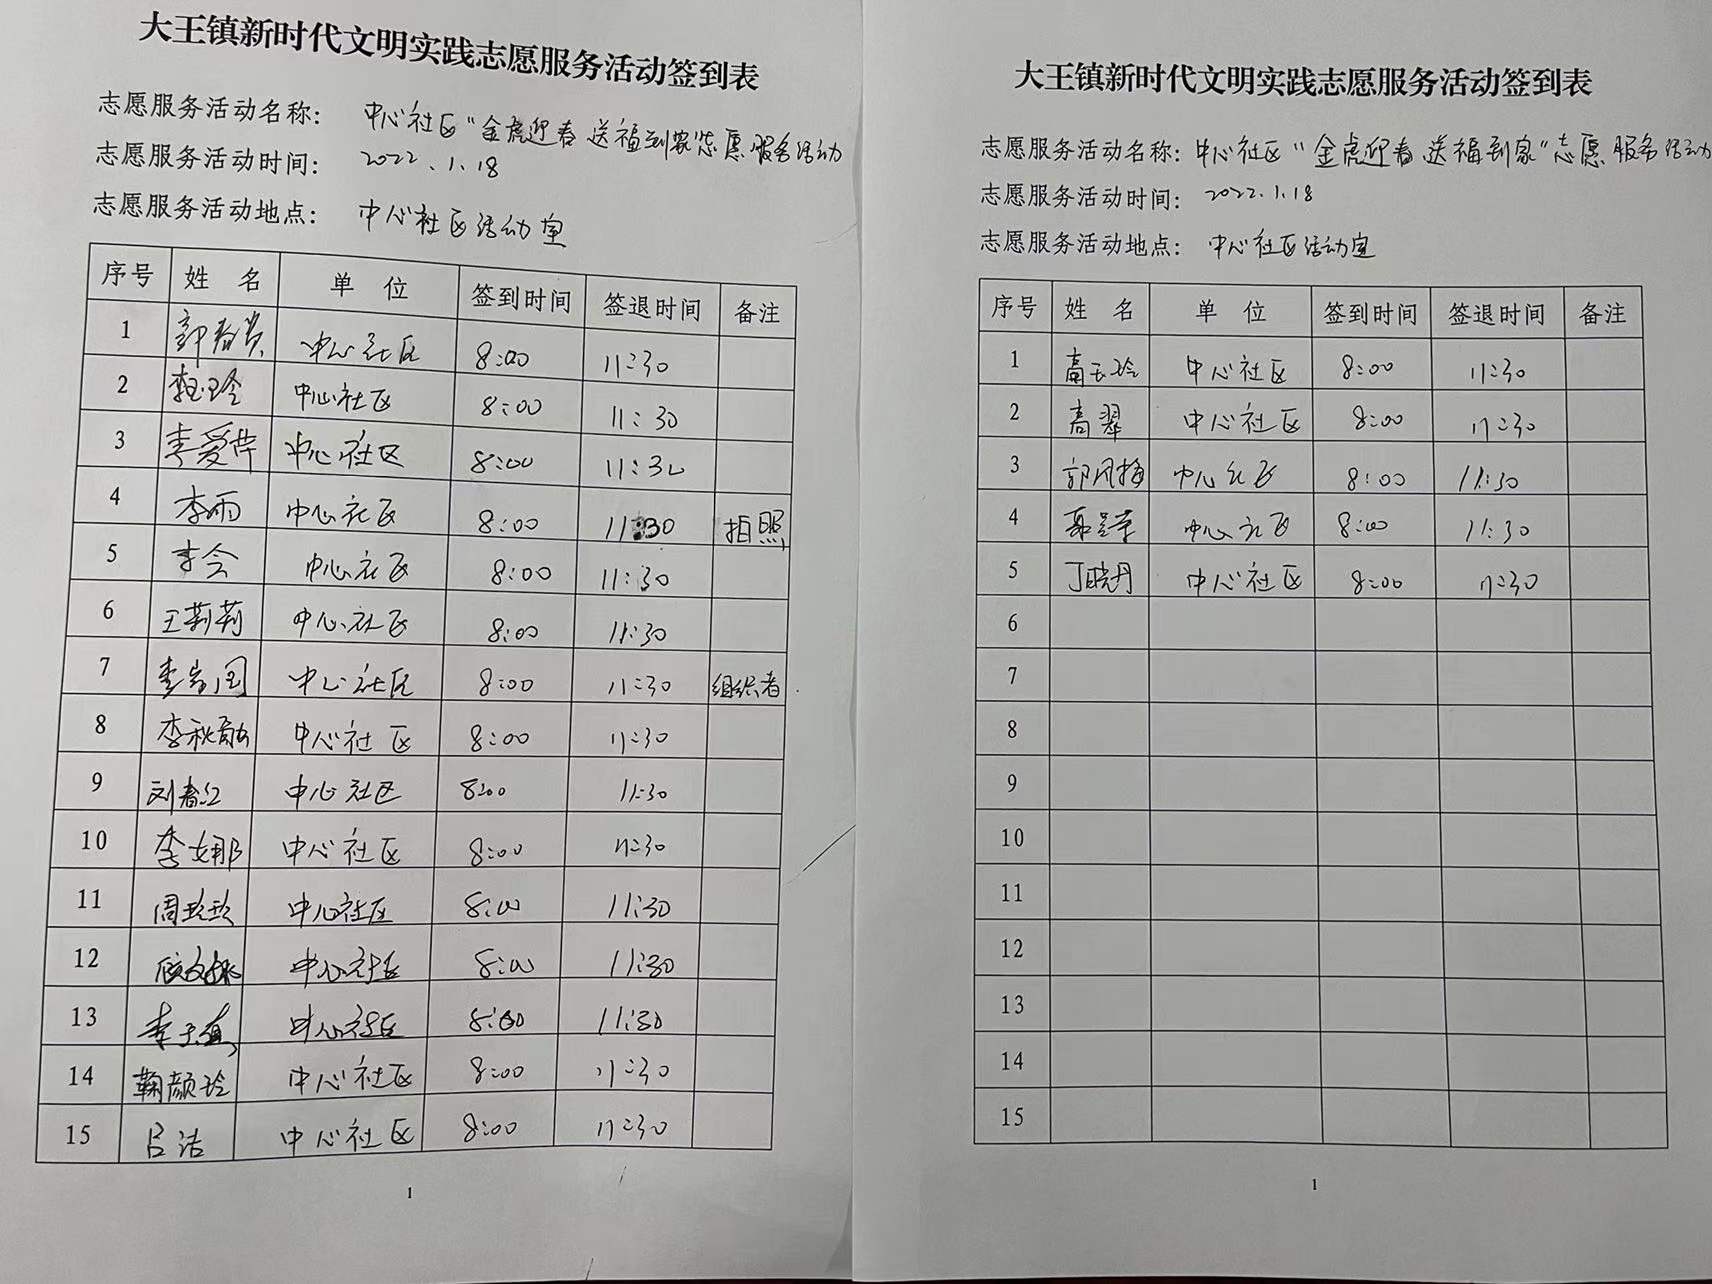 大王镇新时代文明实践志愿服务活动签到表
志愿服务活动名称: 中心社区"金虎迎春 送福到家志愿服务活动
志愿服务活动时间: 2022.1.18
志愿服务活动地点: 中心社区活动室
序号 姓 名 单 位 签到时间 签退时间 备注
1 中心社区 8:00 11:30
2 中心社区 8:00 11:30
3 李爱芹 中心社区 8:00 11:30
4 李雨 中心社区 8:00 11:30 拍照
5 李会 中心社区 8:00 11:30
6 王莉莉 中心社区 8:00 11:30
7 中心社区 8:00 11:30 组织者
8 中心社区 8:00 11:30
9 刘春红 中心社区 8:00 11:30
10 李娜 中心社区 8:00 11:30
11 周玲玲 中心社区 8:00 11:30
12 中心社区 8:00 11:30
13 中心社区 8:00 11:30
14 鞠颜玲 中心社区 8:00 11:30
15 吕洁 中心社区 8:00 11:30
1
大王镇新时代文明实践志愿服务活动签到表
志愿服务活动名称: 中心社区"金虎迎春 送福到家"志愿服务活动
志愿服务活动时间: 2022.1.18
志愿服务活动地点: 中心社区活动室
序号 姓 名 单 位 签到时间 签退时间 备注
1 高玉玲 中心社区 8:00 11:30
2 高翠 中心社区 8:00 11:30
3 郭凤梅 中心社区 8:00 11:30
4 中心社区 8:00 11:30
5 丁晓丹 中心社区 8:00 11:30
6
7
8
9
10
11
12
13
14
15
1